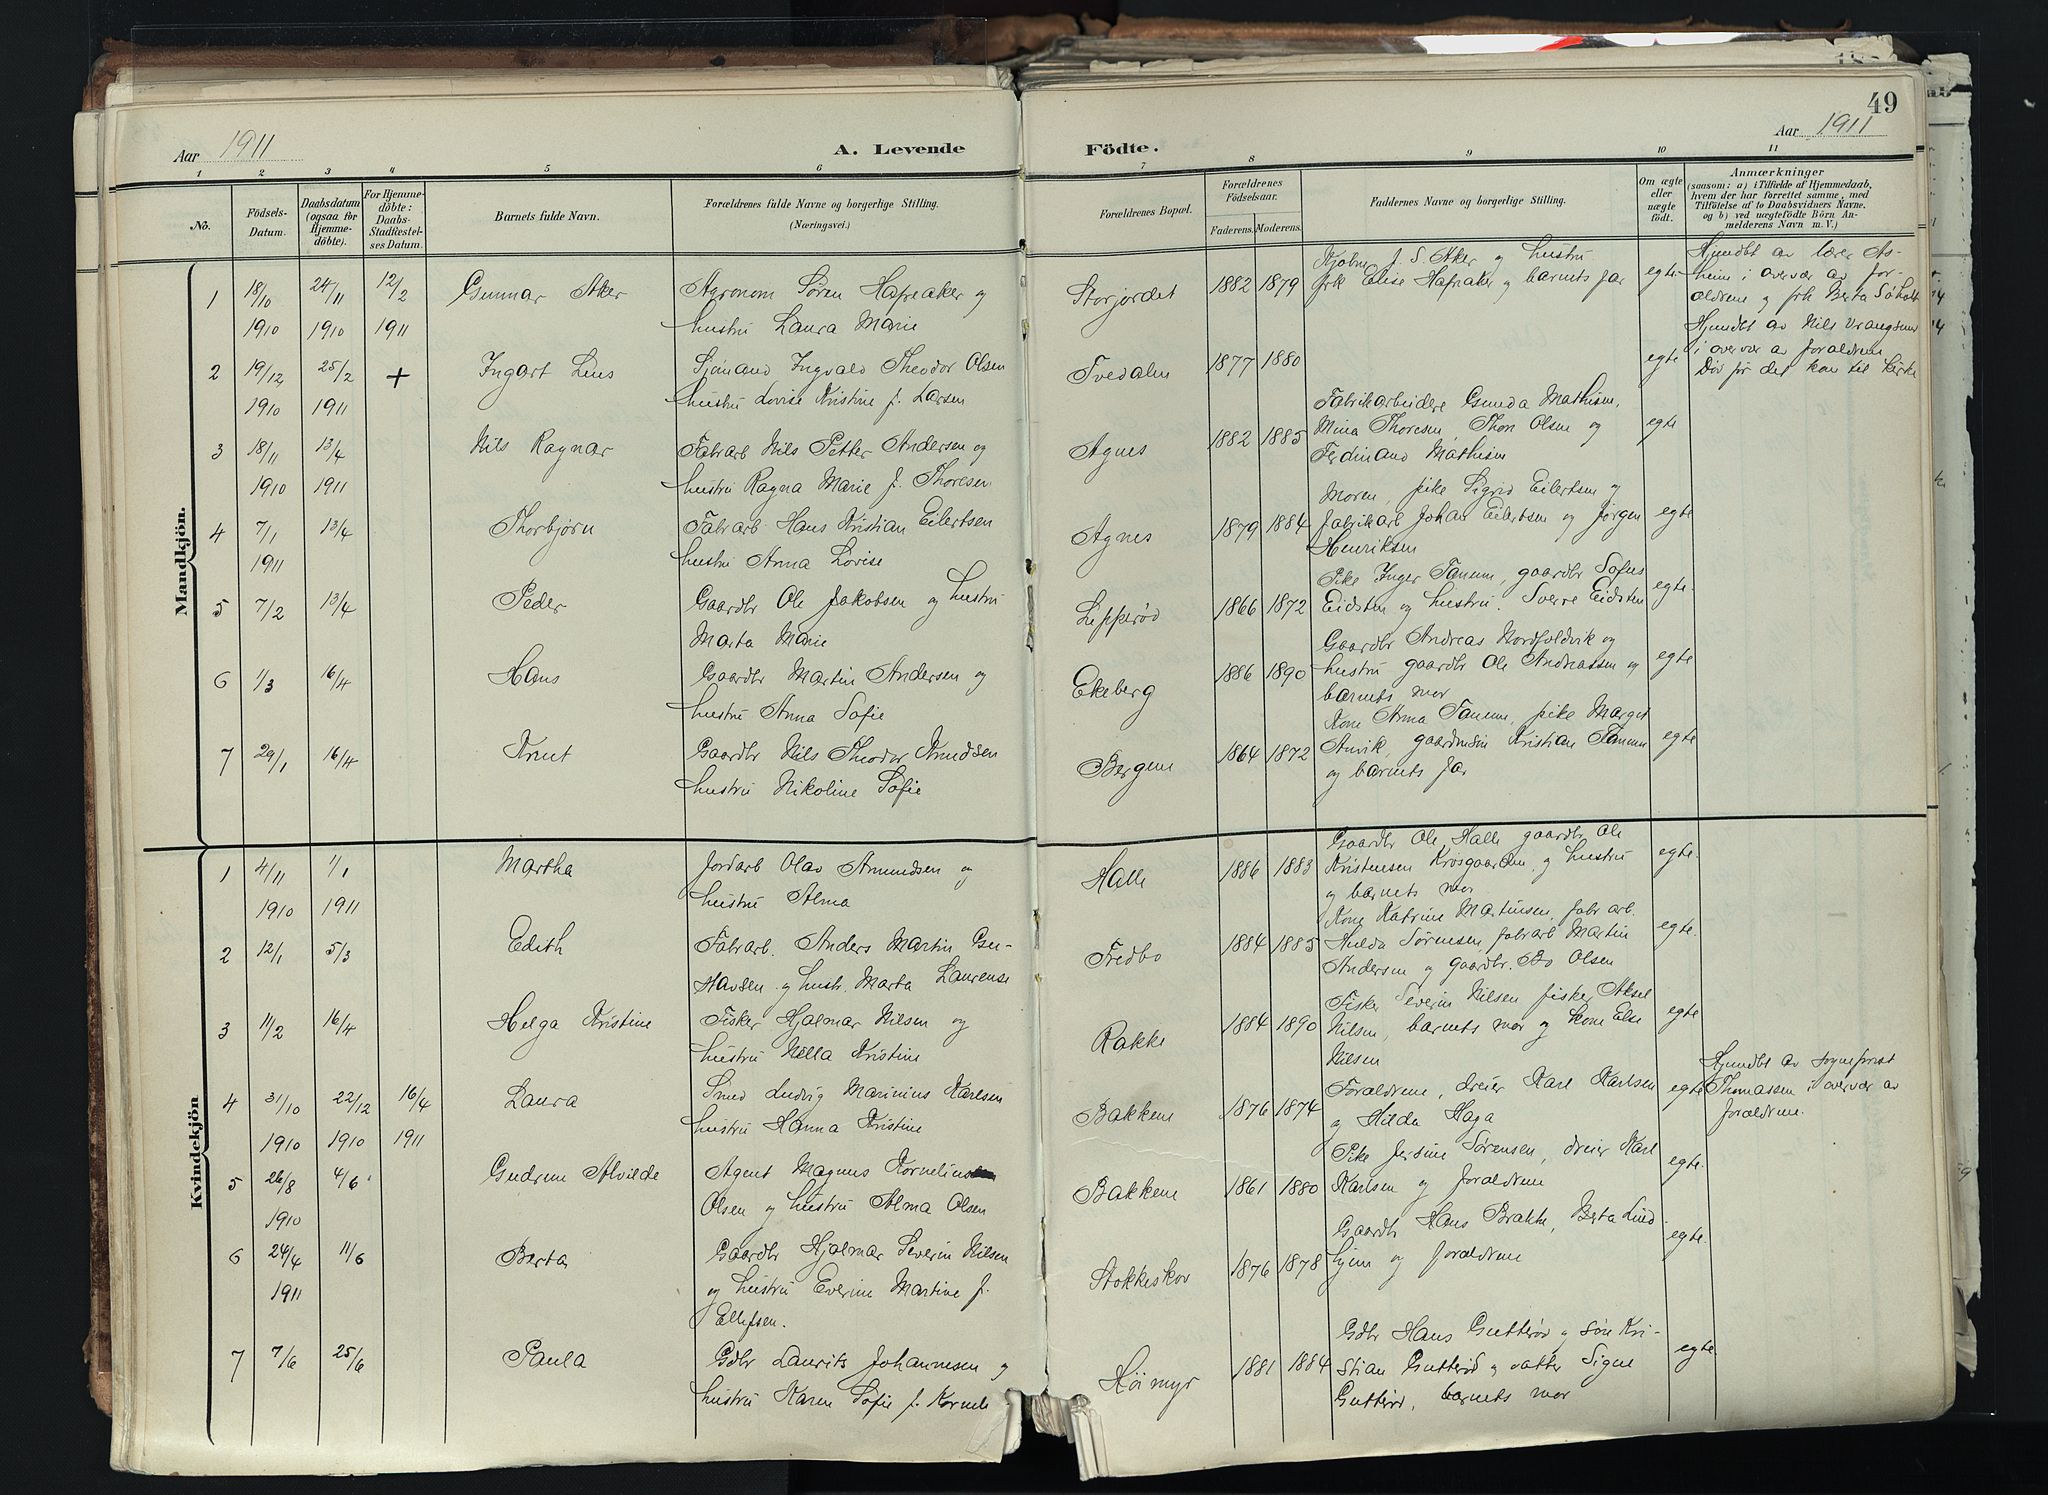 49
Aar 1911
A. Levende
Födte.
Aar 1911
1 2 3 4 5 6 7 8 9 10 11
No.
Födsels-Datum.
Daabsdatum (ogsaa for Hjemmedöbte).
For Hjemmedöbte: Daabs-Stadfestelses Datum.
Barnets fulde Navn.
Forældrenes fulde Navne og borgerlige Stilling.
(Næringsvei.)
Forældrenes Bopæl.
Forældrenes Födselsaar.
Faderens. Moderens.
Faddernes Navne og borgerlige Stilling.
Om ægte eller uægte födt.
Anmærkninger
(saasom: a) i Tilfælde af Hjemmedaab, hvem der har forrettet samme, med Tilföielse af to Daabsvidners Navne, og b) ved uægtefödte Börn Anmelderens Navn m. V.)
Mandkjön.
1 18/10 1910 24/11 1910 12/2 1911 Gunnar Aker
Agronom Søren Hafreaker og
hustru Laura Marie
Storjordet 1882 1879
J. S. Aker og hustru
frk Elise Hafraker og barnets far
egte
Hjemdbt av lærer As-
heim i overvær av for-
ældrene og frk Berta Søholt
2 19/12 1910 25/2 1911 + Ingart Lius
Sjømand Ingvald Theodor Olsen
hustru Lovise Kristine f. Larsen
Tvedalen 1877 1880
egte
Hjemdbt av Nils Vrangsund
i overvær av forældrene
Død før det kom til kirke
3 18/11 1910 13/4 1911 Nils Ragnar
Fabrarb Nils Petter Andersen og
hustru Ragna Marie f. Thoresen
Agnes 1882 1885
Fabrikarbeidere Gunda Mathisen,
Mina Thoresen, Thor Olsen og
Ferdinand Mathisen
egte
4 7/1 1911 13/4 Thorbjørn
Fabrarb. Hans Kristian Eilertsen
hustru Anna Lovise
Agnes 1879 1884
Moren, pike Sigrid Eilertsen og
fabrikarb Johan Eilertsen og Jørgen
Henriksen
egte
5 7/2 13/4 Peder
Gaardbr Ole Jakobsen og hustru
Marta Marie
Lepperød 1866 1872
Pike Inger Tanum, gaardbr Sofus
Eidsten og hustru. Sverre Eidsten
egte.
6 1/3 16/4 Hans
Gaardbr Martin Andersen og
hustru Anna Sofie
Ekeberg 1886 1890
Gaardbr Andreas Nordfoldvik og
hustru gaardbr Ole Andreassen og
barnets mor
egte
7 29/1 16/4 Knut
Gaardbr Nils Theodor Knudsen
hustru Nikoline Sofie
Bergene 1864 1872
Kone Anna Tanum, pike Margit
Anvik, gaardmsøn Kristian Tanum
og barnets far
egte
Kvindekjön
1 4/11 1910 1/1 1911 Martha
Jordarb Olav Amundsen og
hustru Alma
Halle 1886 1883
Gaardbr Ole Halle gaardbr Ole
Kristensen Krøsgaarden og hustru
og barnets mor
egte.
2 12/1 5/3 Edith
Fabrarb. Anders Martin Gu-
stavsen og hustr. Marta Laurense
Fredbo 1884 1885
Kone Katrine Martinsen, fabr arb.
Hulda Sørensen, fabrarb Martin
Andersen og gaardbr. Bo Olsen
egte.
3 11/2 16/4 Helga Kristine
Fisker Hjalmar Nilsen og
hustru Nilla Kristine
Rakke 1884 1890
Fisker Severin Nilsen fisker Aksel
Nilsen, barnets mor og kone Else
Nilsen
egte
4 31/10 1910 22/12 1910 16/4 1911 Laura
Smed Ludvig Marinius Karlsen
hustru Hanna Kristine
Bakkene 1876 1874
Forældrene, dreier Karl Karlsen
og Hilda Haga
egte
Hjemdbt av sogneprest
Thomassen i overvær av
forældrene.
5 26/8 1910 4/6 Gudrun Alvilde
Agent Magnus Kornelius
Olsen og hustru Alma Olsen
Bakkene 1861 1880
Pike Jersine Sørensen, dreier Karl
Karlsen og forældrene
egte.
6 24/4 1911 11/6 Berta
Gaardbr Hjalmar Severin Nilsen
og hustru Everine Martine f.
Ellefsen.
Stokkeskov 1876 1878
Gaardbr Hans Brakke, Berta Lind-
hjem og forældrene
egte.
7 7/6 25/6 Paula
Gdbr Laurits Johannesen og
hustru Karen Sofie f. Korneli
Høimyr 1881 1884
Gdbr Hans Gutterød og søn Kri-
stian Gutterød og datter Signe
Gutterød, barnets mor
egte